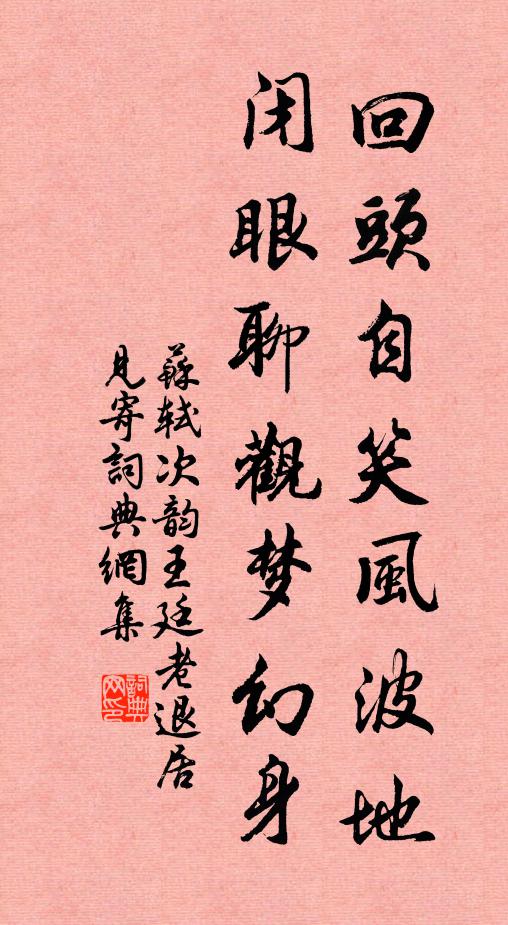 回頭自笑風波地
闭眼聊觀梦幻身
蘇轼次韵王廷老退居
見寄詞典網集
詞典
网印